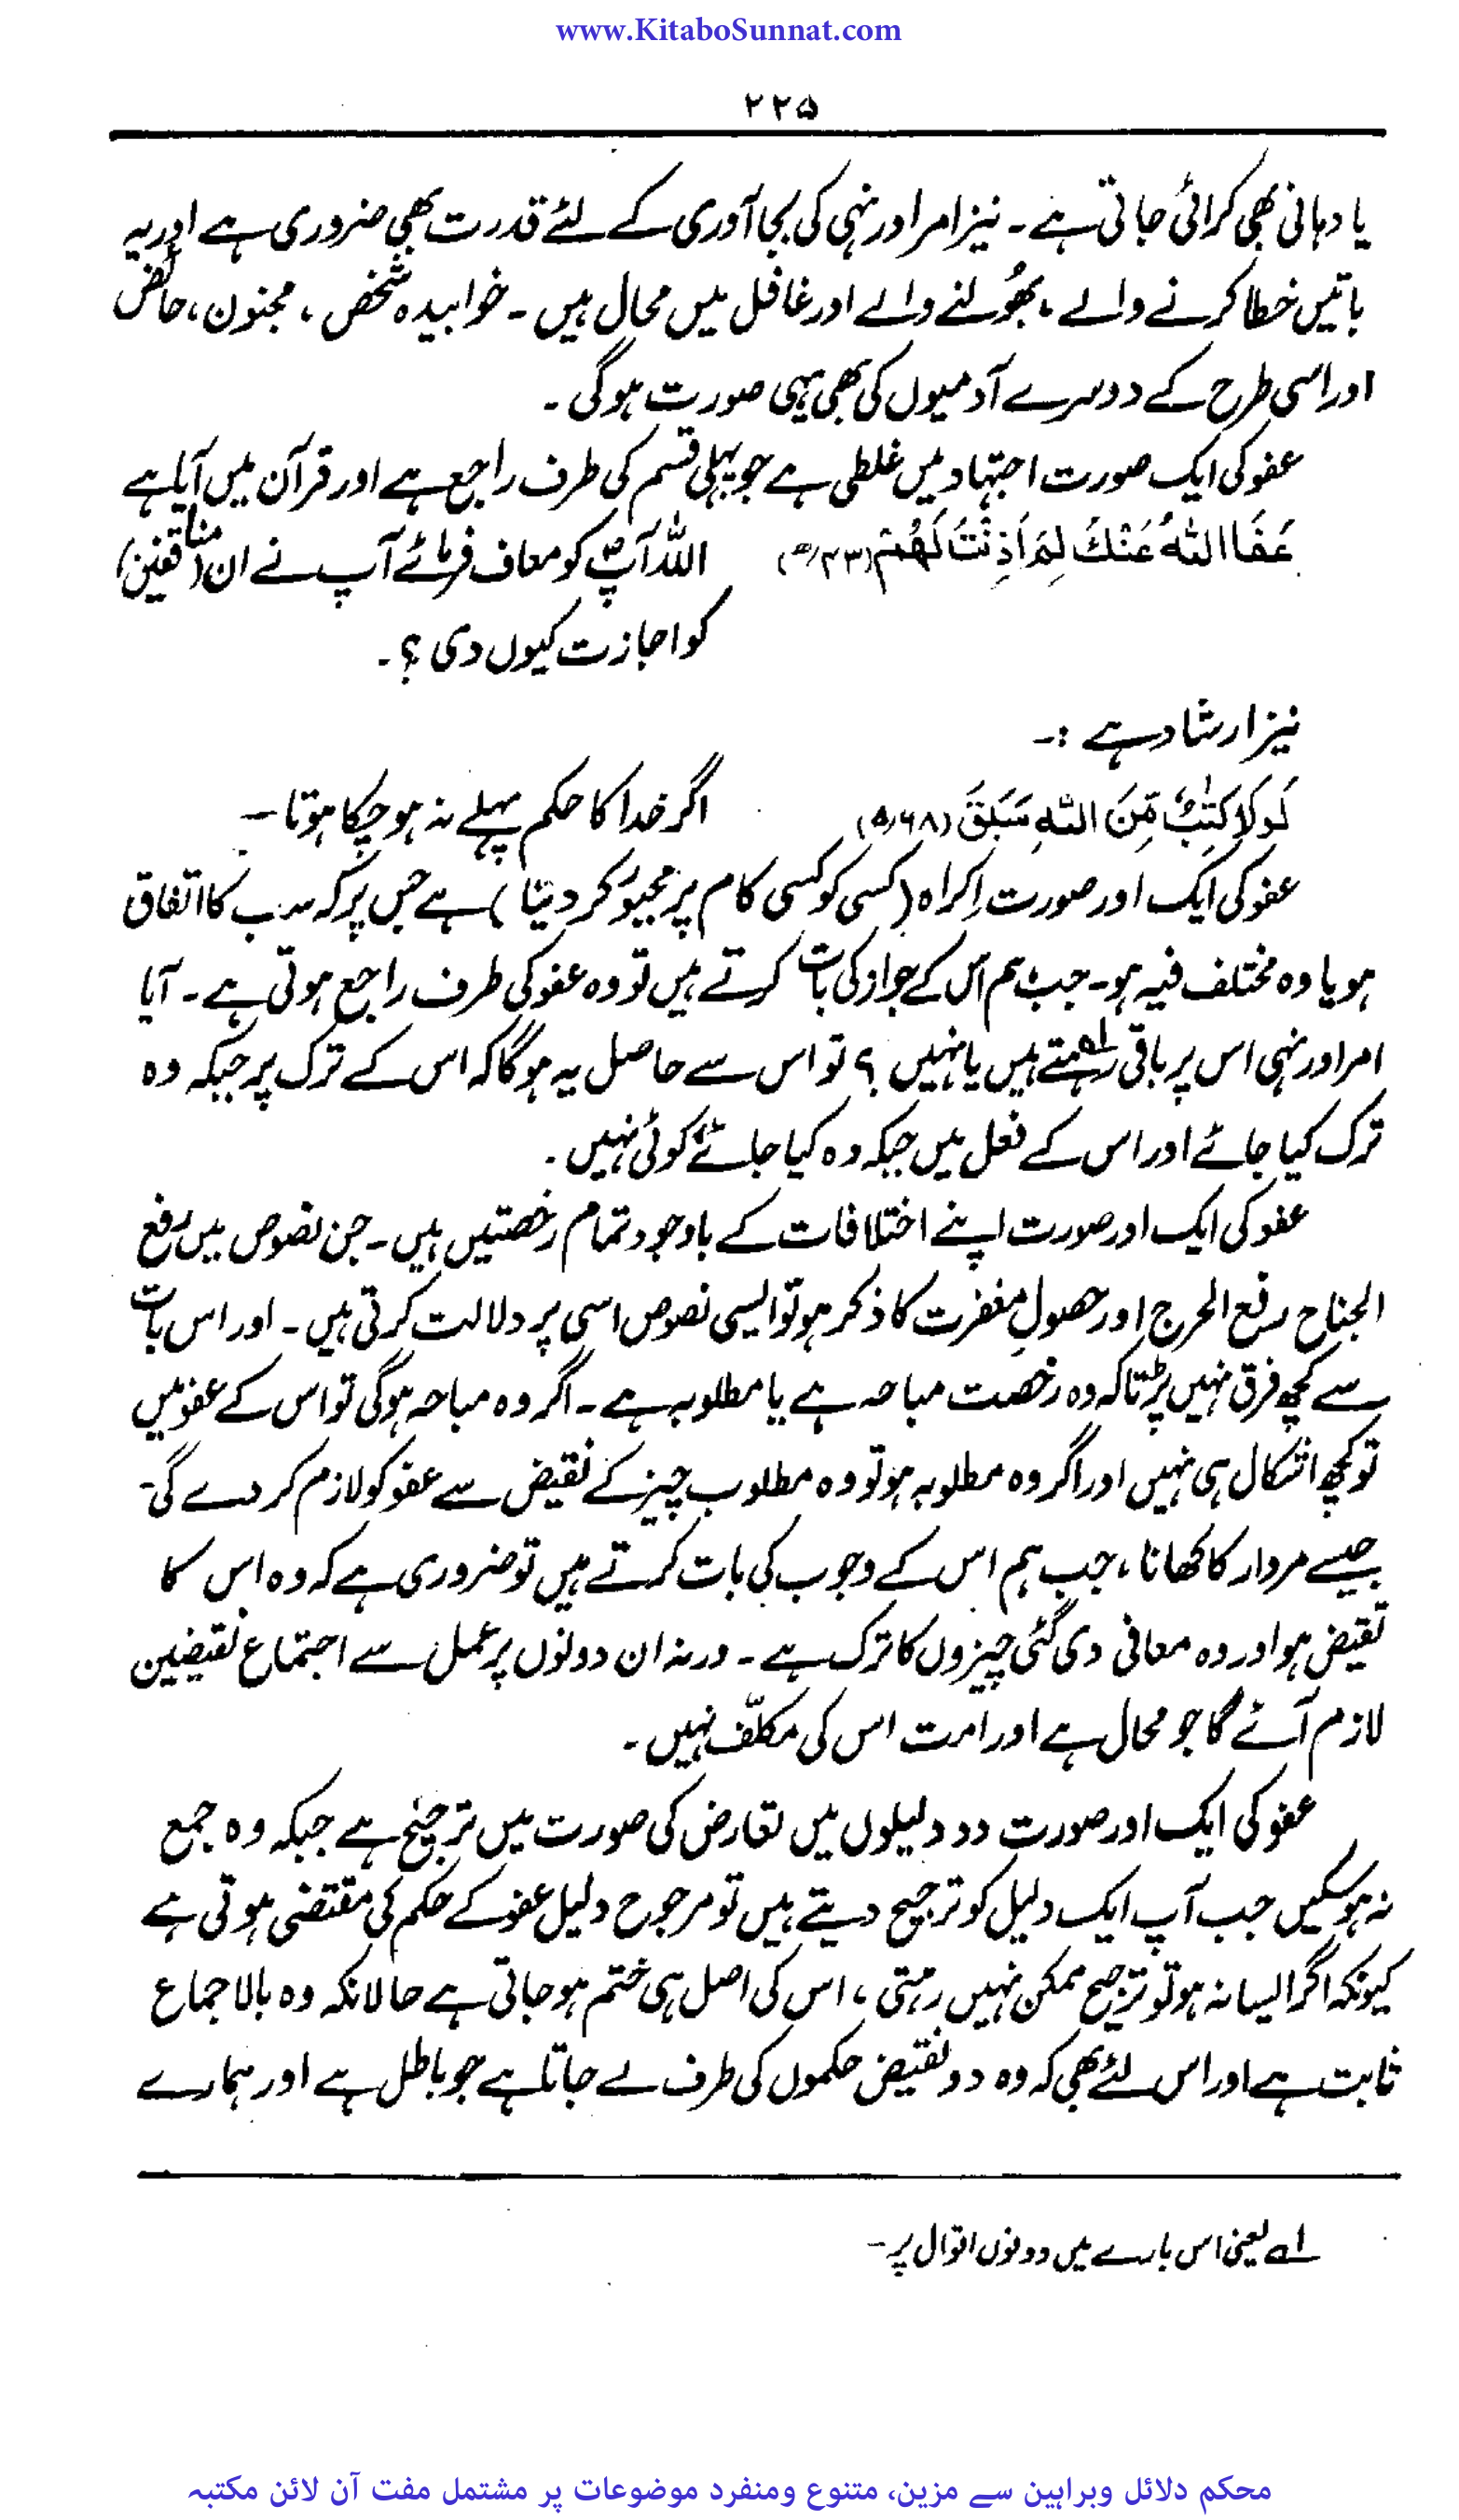 www.KitaboSunnat.com
۲۲۵
یاددہانی بھی کرائی جاتی ہے۔ نیز امر اور نہی کی بجا آوری کے لئے قدرت بھی ضروری ہے اور یہ
باتیں خطا کرنے والے، بھُولنے والے اور غافل میں محال ہیں۔ خوابیدہ شخص، مجنون، حائض
اور اسی طرح کے دوسرے آدمیوں کی بھی یہی صورت ہوگی۔
عفو کی ایک صورت اجتہاد میں غلطی ہے جو پہلی قسم کی طرف راجع ہے اور قرآن میں آیا ہے
عَفَا اللّٰهُ عَنْكَ لِمَ اَذِنْتَ لَهُمْ (۹/۴۳) اللہ آپؐ کو معاف فرمائے آپ نے ان (منافقین)
کو اجازت کیوں دی؟۔
نیز ارشاد ہے :۔
لَوْلَا كِتٰبٌ مِّنَ اللّٰهِ سَبَقَ (۸/۶۸) اگر خدا کا حکم پہلے نہ ہو چکا ہوتا۔
عفو کی ایک اور صورت اِکراہ (کسی کو کسی کام پر مجبُور کر دینا) ہے جس پر کہ سب کا اتفاق
ہو یا وہ مختلف فیہ ہو۔ جب ہم اس کے جواز کی بات کرتے ہیں تو وہ عفو کی طرف راجع ہوتی ہے۔ آیا
امر اور نہی اس پر باقی رہتے ہیں یا نہیں؟ لے تو اس سے حاصل یہ ہوگا کہ اس کے ترک پر جبکہ وہ
ترک کیا جائے اور اس کے فعل میں جبکہ وہ کیا جائے کوئی نہیں۔
عفو کی ایک اور صورت اپنے اختلافات کے باوجود تمام رخصتیں ہیں۔ جن نصوص میں رفع
الجناح رفع الحرج اور حصولِ مغفرت کا ذکر ہو تو ایسی نصوص اسی پر دلالت کرتی ہیں۔ اور اس بات
سے کچھ فرق نہیں پڑتا کہ وہ رخصت مباحہ ہے یا مطلوبہ ہے۔ اگر وہ مباحہ ہوگی تو اس کے عفو میں
تو کچھ اشکال ہی نہیں اور اگر وہ مطلوبہ ہو تو وہ مطلوب چیز کے نقیض سے عفو کو لازم کر دے گی۔
جیسے مردار کا کھانا، جب ہم اس کے وجوب کی بات کرتے ہیں تو ضروری ہے کہ وہ اس کا
نقیض ہو اور وہ معافی دی گئی چیزوں کا ترک ہے۔ ورنہ ان دونوں پر عمل سے اجتماع نقیضین
لازم آئے گا جو محال ہے اور امت اس کی مکلّف نہیں۔
عفو کی ایک اور صورت دو دلیلوں میں تعارض کی صورت میں ترجیح ہے جبکہ وہ جمع
نہ ہو سکیں جب آپ ایک دلیل کو ترجیح دیتے ہیں تو مرجوح دلیل عفو کے حکم کی مقتضی ہوتی ہے
کیونکہ اگر ایسا نہ ہو تو ترجیح ممکن نہیں رہتی، اس کی اصل ہی ختم ہو جاتی ہے حالانکہ وہ بالاجماع
ثابت ہے اور اس لئے بھی کہ وہ دو نقیض حکموں کی طرف لے جاتا ہے جو باطل ہے اور ہمارے
لے یعنی اس بارے میں دونوں اقوال پر۔
محکم دلائل وبراہین سے مزین، متنوع ومنفرد موضوعات پر مشتمل مفت آن لائن مکتبہ